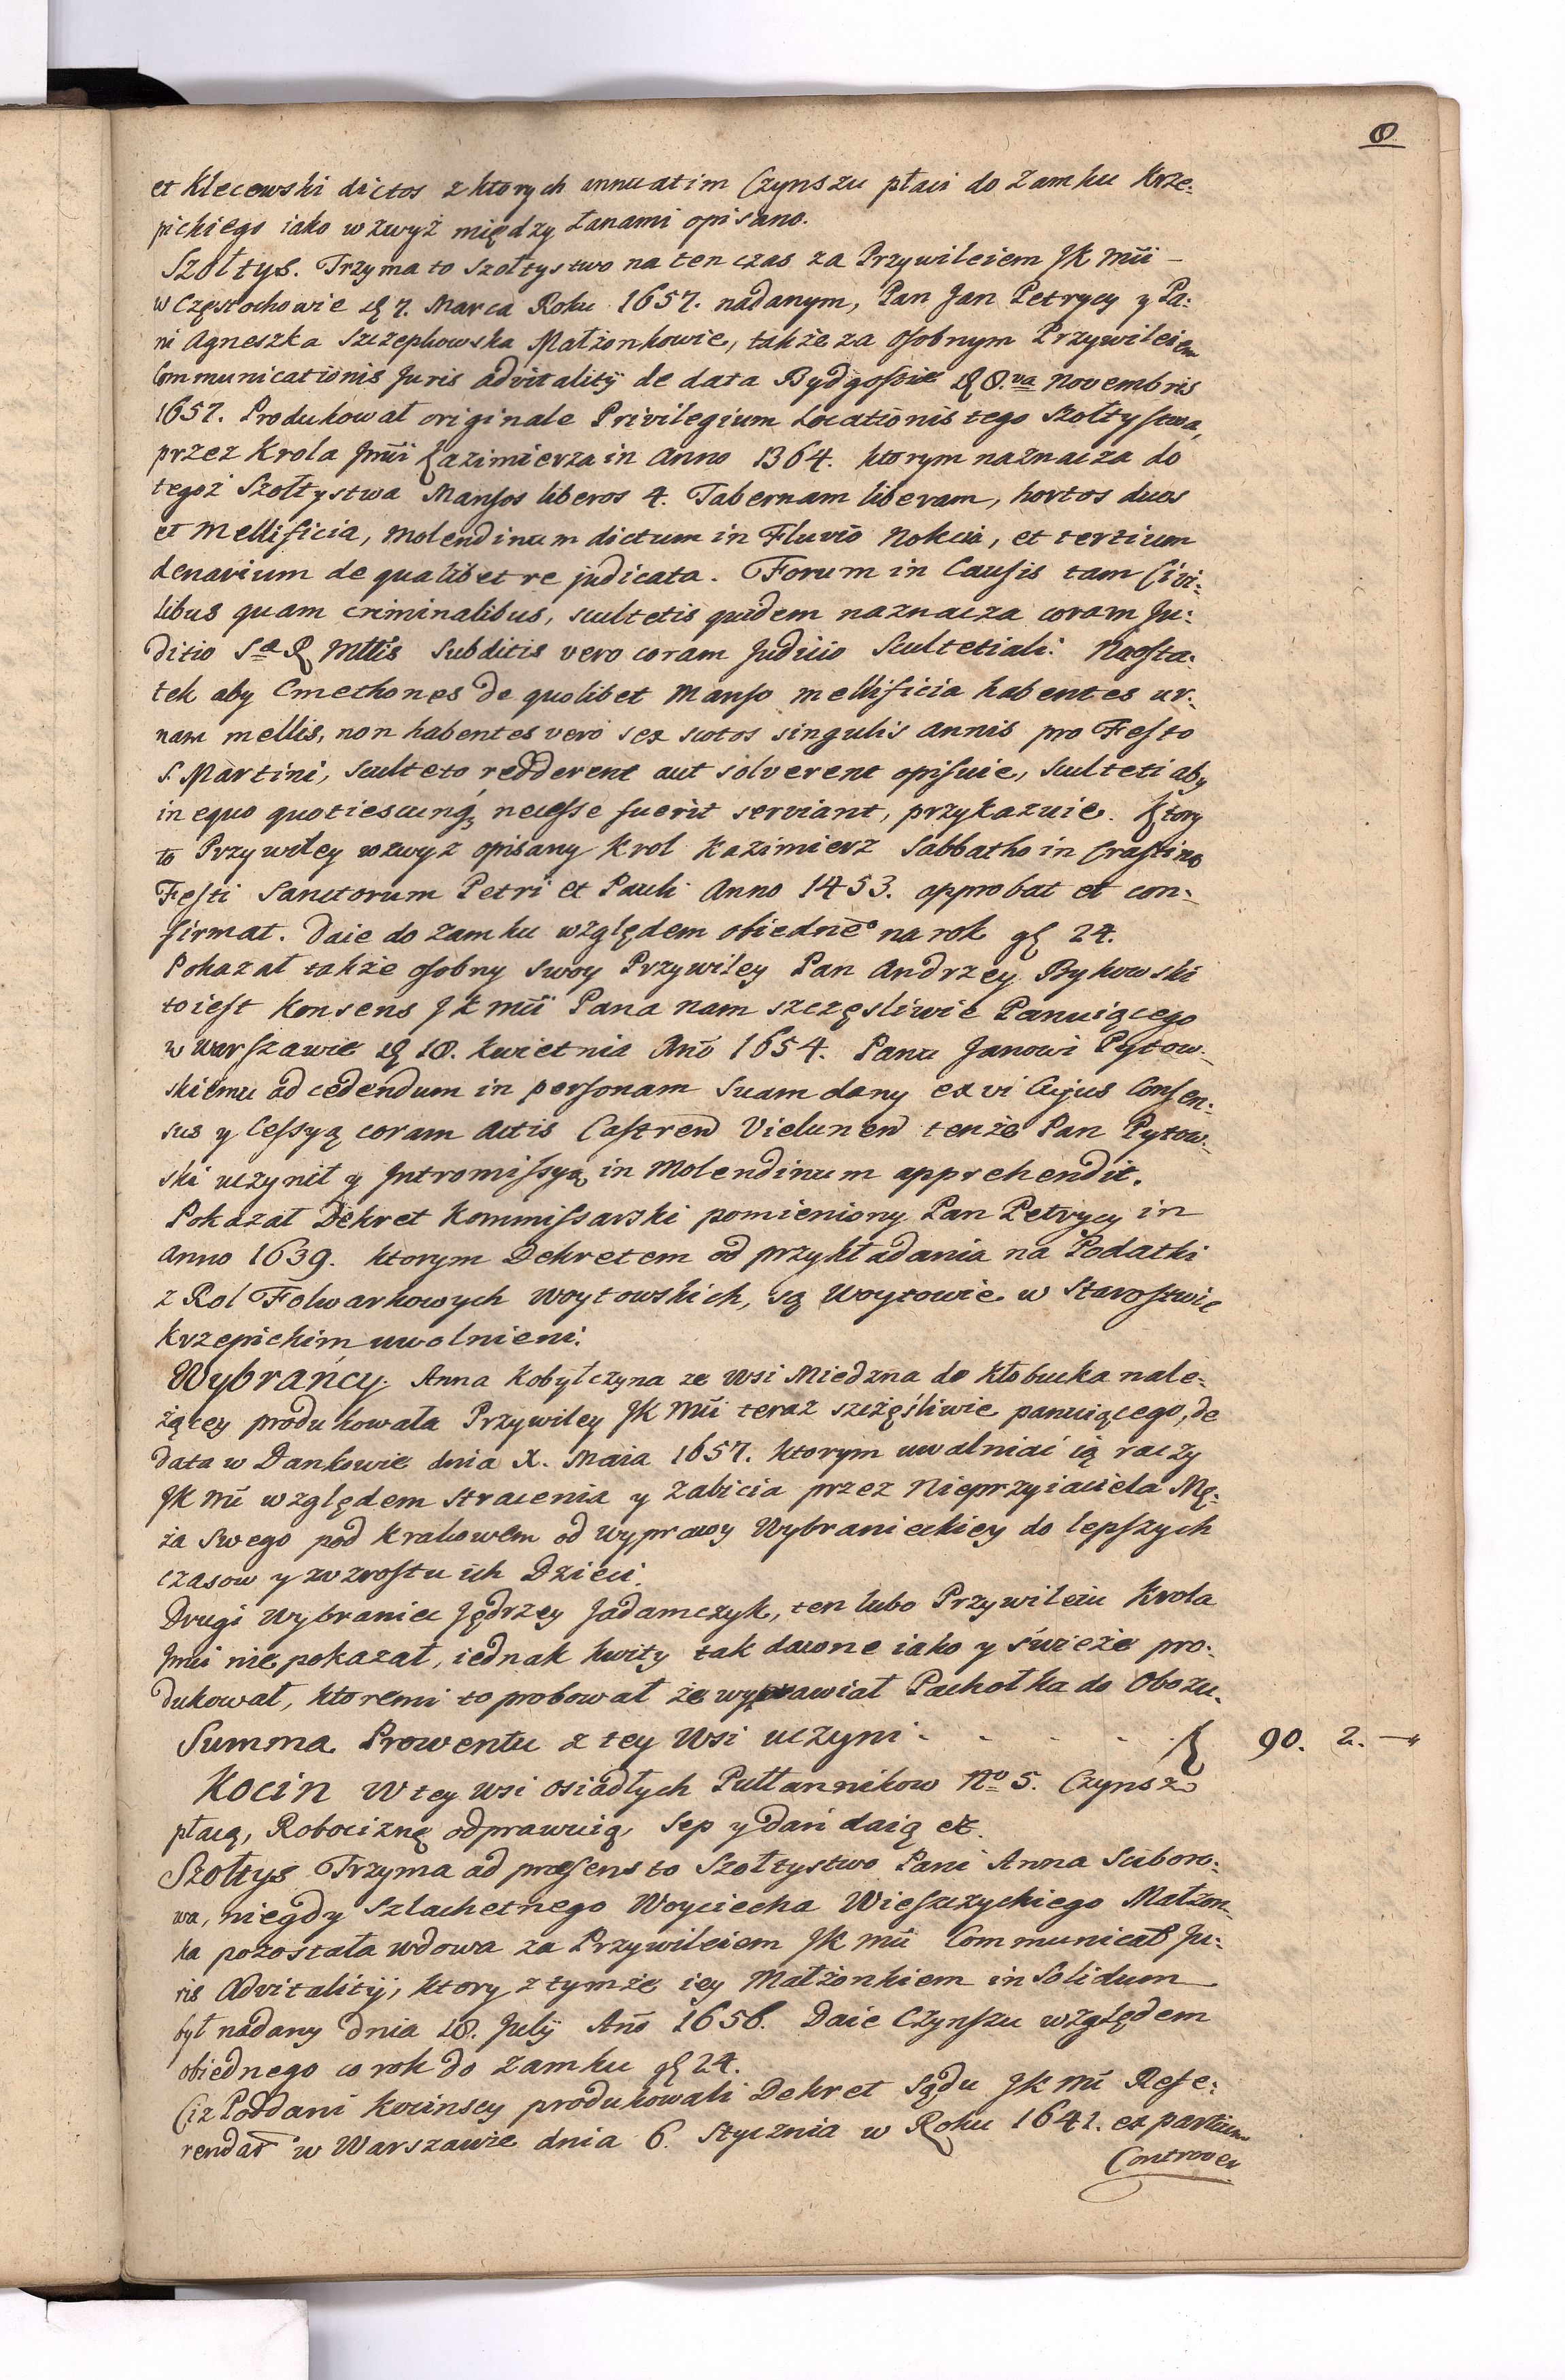 8
et Klecewski dictos z ktorych annuatim Czynszu płaci do Zamku Krze:
pickiego iako wzwyż między Łanami opisano.
Szołtys. Trzyma to Szołtystwo na ten czas za Przywileiem JK Mci –
w Częstochowie d 7. Marca Roku 1657. nadanym, Pan Jan Petrycy y Pa:
ni Agneszka Szczepkowska Małżonkowie, także za osobnym Przywileiem
Communicationis Juris advitalitÿ de data Bydgoszcz d 8.va Novembris
1657. Produkował originale Privilegium Locationis tego Szołtystwa,
przez Krola Jmci Kazimierza in Anno 1364. ktorym naznacza do
tegoż Szołtystwa Mansos liberos 4. Tabernam liberam, hortos duos
et Mellificia, Molendinum dictum in Fluvio Nokcia, et tertium
denarium de qualibet re judicata. Forum in Causis tam Civi:
libus quam criminalibus, scultetis quidem naznacza coram Ju:
ditio S R Mttis Subditis vero coram Judicio Scultetiali. Naosta:
tek aby Cmethones de quolibet Manso mellificia habentes ur:
nam mellis, non habentes vero sex scotos singulis annis pro Festo
S. Martini, Sculteto redderent aut solverent opisuie, sculteti aby
in equo quotiescunq necesse fuerit serviant, przykazuie. Ktory
to Przywiley wzwyż opisany Krol Kazimierz Sabbatho in Crastino
Festi Sanctorum Petri et Pauli Anno 1453. approbat et con:
firmat. Daie do Zamku względem obiedne° na rok gl 24.
Pokazał także osobny swoy Przywiley Pan Andrzey Bykowski
toiest Konsens JK Mci Pana nam szczęsliwie Panuiącego
w Warszawie d 18. Kwietnia Anō 1654. Panu Janowi Pytow:
skiemu ad cedendum in personam Suam dany ex vi Cujus Consen:
sus y Cessyą coram Actis Castren Vielunen tenże Pan Pytow:
ski uczynił y Intromissyą in Molendinum apprehendit.
Pokazał Dekret Kommissarski pomieniony Pan Petrycy in
Anno 1639. ktorym Dekretem od przykładania na Podatki
z Rol Folwarkowych Woytowskich, są Woytowie w Starostwie
Krzepickim uwolnieni.
Wybrańcy. Anna Kobyłczyna ze Wsi Miedzna do Kłobucka nale:
żącey produkowała Przywiley JK Mci teraz szczęśliwie panuiącego, de
data w Dankowie dnia X. Maia 1657. ktorym uwalniać ią raczy
JK Mci względem stracenia y zabicia przez Nieprzyiaciela Mę:
ża Swego pod Krakowem od wyprawy Wybranieckiey do lepszych
czasow y wzrostu ich Dzieci.
Drugi Wybraniec Jędrzey Jadamczyk, ten lubo Przywileiu Krola
Jmci nie pokazał, iednak kwity tak dawne iako y świeże pro:
dukował, ktoremi to probował że wyprawiał Pachołka do Obozu.
Summa Prowentu z tey Wsi uczyni . . . . . 90. 2. –
Kocin W tey wsi osiadłych Pułłannikow No 5. Czynsz
płacą, Robociznę odprawuią, Sep y dań daią etc.
Szołtys Trzyma ad præsens to Szołtystwo Pani Anna Suboro:
wa, niegdy Szlachetnego Woyciecha Wieszczyckiego Małżon:
ka pozostała wdowa za Przywileiem JK Mci Communicat Ju:
ris Advitalitÿ, ktory z tymże iey Małżonkiem in Solidum
był nadany dnia 18. Julÿ Anō 1656. Daie Czynszu względem
obiednego co rok do Zamku gl 24.
Ciz Poddani Kocinscy produkowali Dekret Sądu JK Mci Refe:
rendar w Warszawie dnia 6. Stycznia w Roku 1641. ex partium
Controver